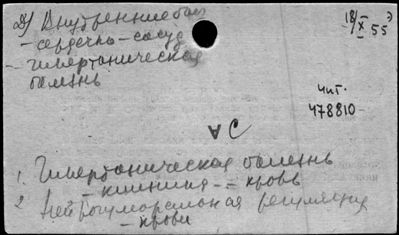 28) Внутренние бол
18/X 55
- сердечно-сосуд
- гипертоническая
болезнь
чит.
478810
АС
1. Гипертоническая болезнь
- клиника - - кровь
2. Нейрогуморальная регуляция
- крови